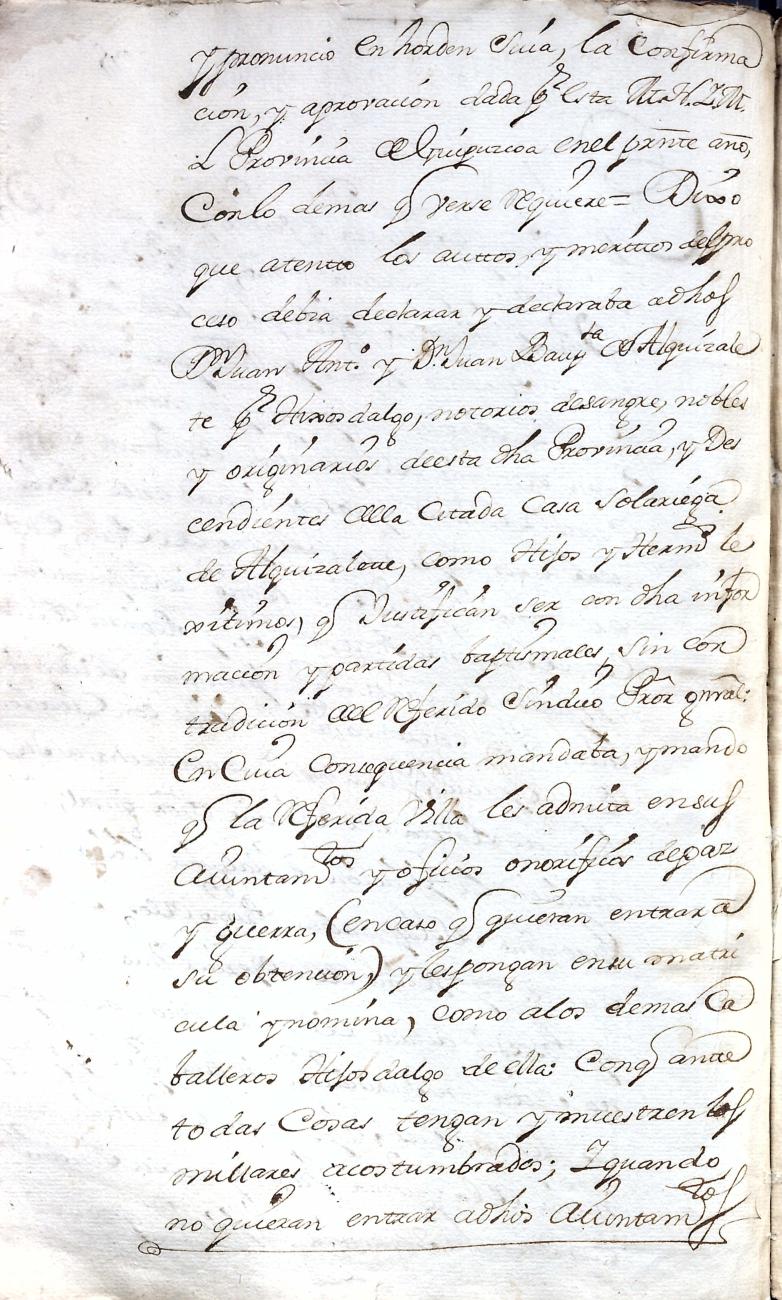 y pronuncio en horden suia, la Confirma
cion, y aprovacion dada pr Esta M. N. Y M.
L Provincia de Guipuzcoa en el prnte año,
Con lo demas q verse requiere = Dixo
que atento los auttos, y merittos del pro
ceso debia declarar y declaraba a dhos
Dn Juan Anto. y Dn Juan Bauta de Alquizale
te pr Hixosdalgo, notorios de sangre, nobles
y originarios de esta dha Provincia, y Des
cendientes de la Citada Casa Solariega
de Alquizalete, como Hijos y Hermos le
xitimos, q Justifican ser con dha infor
macion y partidas baptismales, sin con
tradicion del referido Sindico Pror gnral:
En Cuia Consequencia mandaba, y mando
q la referida Villa les admita en sus
Aiuntamtos y oficios onorificos de paz
y guerra, (en caso q quieran entrar a
su obtencion,) y les pongan en su matri
cula y nomina, como a los demas Ca
balleros Hijosdalgo de ella: Con q ante
todas Cosas tengan y muestren los
millares acostumbrados; Y quando
no quieran entrar a dhos Aiuntamtos